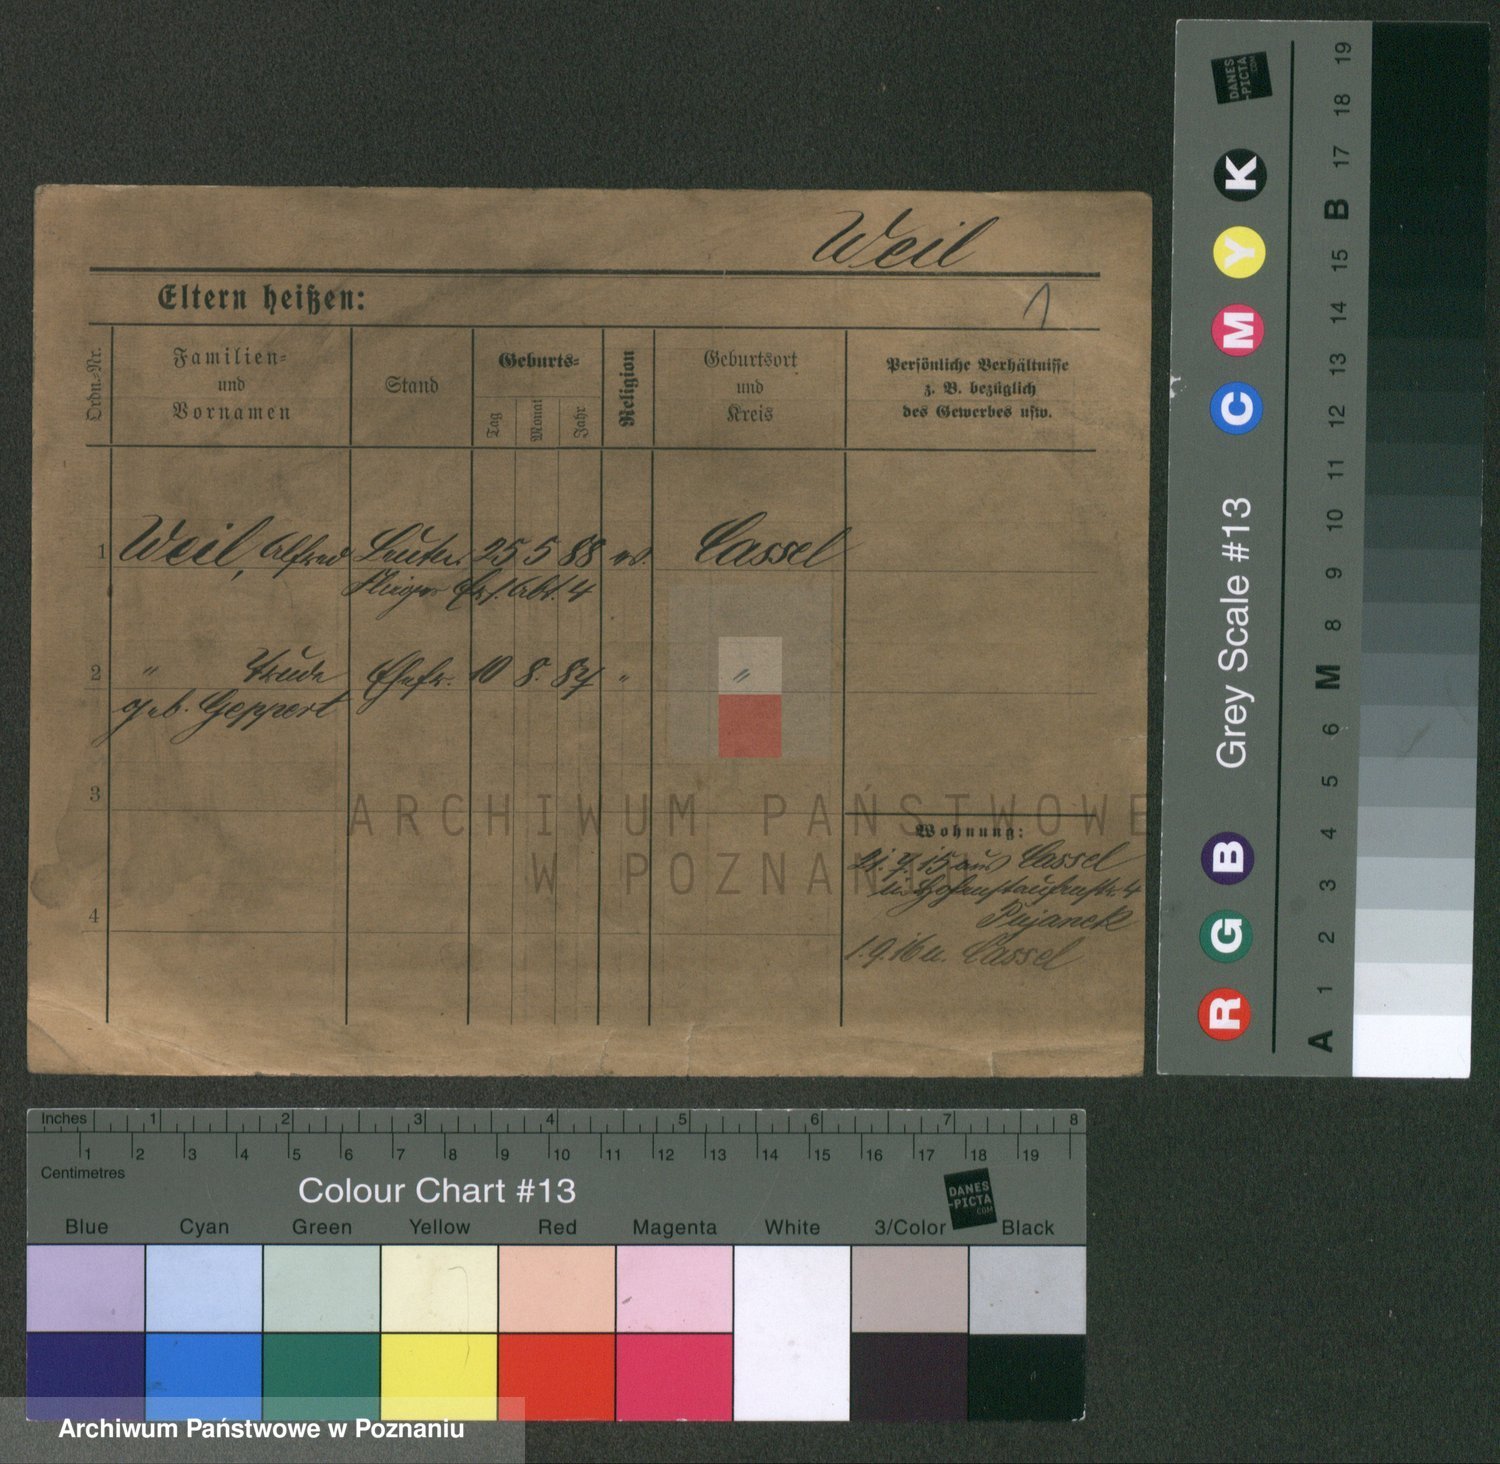 Weil
Eltern heißen:
1
Ordn.-Nr.
Familien-
und
Vornamen
Stand
Geburts-
Tag
Monat
Jahr
Religion
Geburtsort
und
Kreis
Persönliche Verhältnisse
z. B. bezüglich
des Gewerbes usw.
1 Weil, Alfred Leutn. 25 5 88 ev. Cassel
Flieger Ers. Abt. 4
2 " Trude Ehefr. 10 8. 87 " "
geb. Geppert
3
4
Wohnung:
21.7.15 aus Cassel
n. Hohenstaufenstr. 4
Pujanek
1.9.16 n. Cassel
ARCHIWUM PAŃSTWOWE
W POZNANIU
DANES
-PICTA
.COM
R G B Grey Scale #13 C M Y K
A 1 2 3 4 5 6 M 8 9 10 11 12 13 14 15 B 17 18 19
Inches 1 2 3 4 5 6 7 8
1 2 3 4 5 6 7 8 9 10 11 12 13 14 15 16 17 18 19
Centimetres
Colour Chart #13
DANES
-PICTA
.COM
Blue Cyan Green Yellow Red Magenta White 3/Color Black
Archiwum Państwowe w Poznaniu